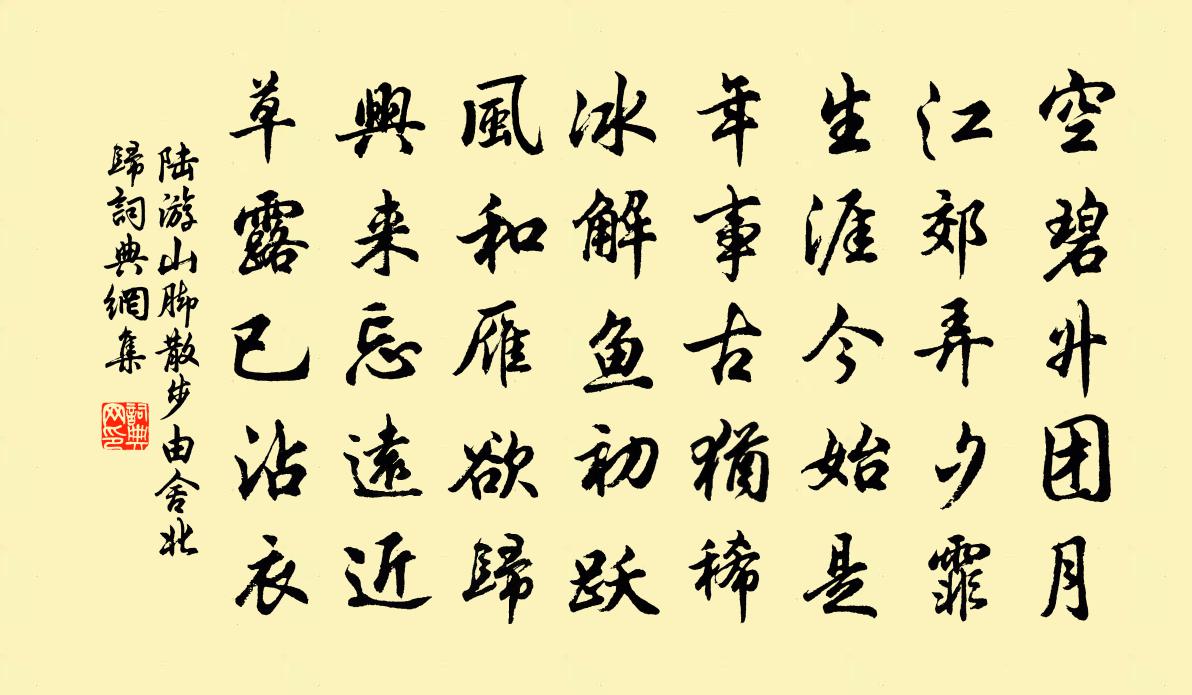 空碧升团月
江郊弄夕霏
生涯今始是
年事古犹稀
冰解鱼初跃
風和雁欲歸
興来忘遠近
草露已沾衣
陆游山脚散步由舍北
歸詞典網集
詞典
网印